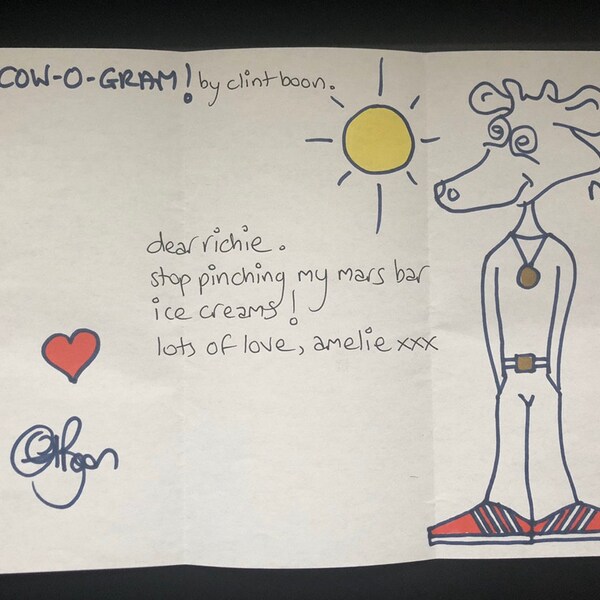 COW-O-GRAM! by clint boon.
dear richie.
stop pinching my mars bar
ice creams!
lots of love, amelie xxx